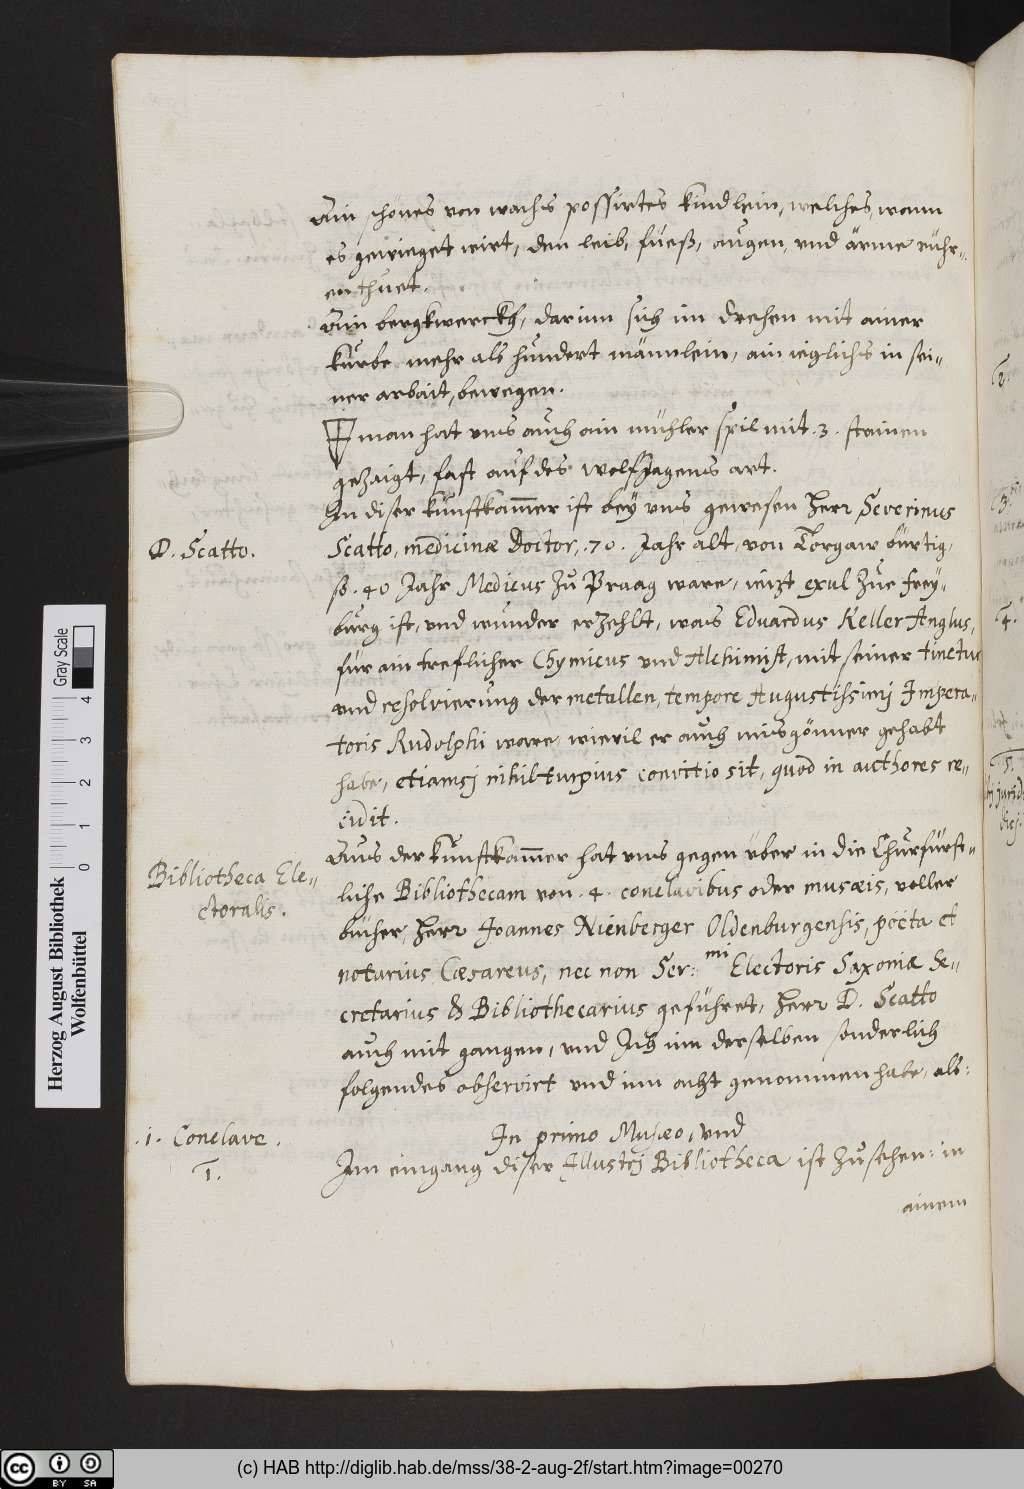 Ain schönes von wachs possirtes kindlein, welches, wann
es gewieget wirt, den leib, füeß, augen, vnd ärme rühr-
en thuet.
Ain bergkwerckh, darinn sich im drehen mit ainer
kurbe mehr als hundert männlein, ain ieglichs in sei-
ner arbait, bewegen.
man hat vns auch ain mühler spil mit .3. stainen
gezaigt, fast auf des wolfjagens art.
In diser kunstkam̄er ist bey vns gewesen Herr Severinus
D. Scatto.
Scatto, medicinæ Doctor, .70. Jahr alt, von Torgaw bürtig,
so .40 Jahr Medicus zu Praag ware, ietzt exul zue frey-
burg ist, vnd wunder erzehlt, was Eduardus Keller Anglus,
für ain treflicher Chymicus vnd Alchimist, mit seiner tinctur
vnd resolvierung der metallen, tempore Augustissimj Impera-
toris Rudolphi ware, wievil er auch misgönner gehabt
habe, etiamsj nihil turpius convitio sit, quod in authores re-
cidit.
Aus der kunstkam̄er hat vns gegen vber in die Churfürst-
Bibliotheca Ele-
ctoralis.
liche Bibliothecam von .4. conclavibus oder musæis, voller
bücher, Herr Joannes Nienberger Oldenburgensis, poëta et
notarius Cæsareus, nec non Ser:mi Electoris Saxoniæ Se-
cretarius & Bibliothecarius geführet, Herr D. Scatto
auch mit gangen, vnd Ich inn derselben sonderlich
folgendes observirt vnd inn acht genommen habe, als:
.1. Conclave.
1.
In primo Musæo, vnd
Im eingang diser Illustrj Bibliotheca ist zusehen: in
ainem
Herzog August Bibliothek
Wolfenbüttel
Gray Scale
0 1 2 3 4
(c) HAB http://diglib.hab.de/mss/38-2-aug-2f/start.htm?image=00270
CC BY SA